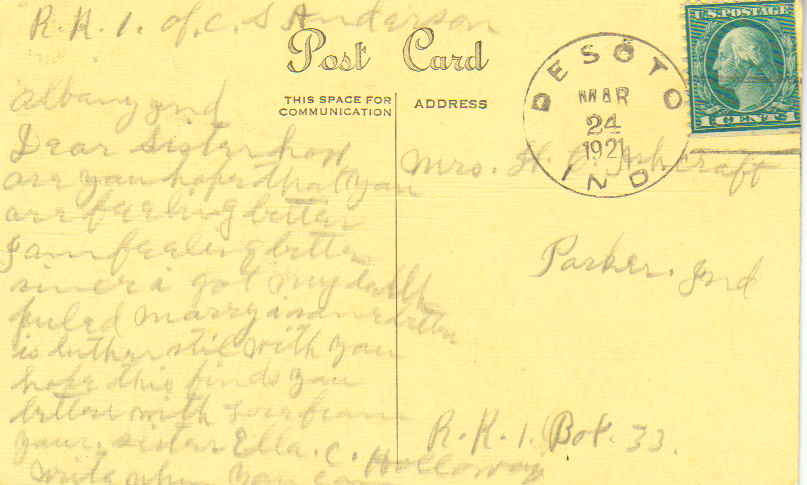 R.R.1. of C. S Anderson
Post Card
THIS SPACE FOR
COMMUNICATION
ADDRESS
U.S. POSTAGE
1 CENT 1
DESOTO
MAR
24
1921
IND
albany Ind
Dear Sister how
are you hope that you
are feeling better
I am feeling better
since i got my
puled marry
is luther stil with you
hope this finds you
better with love from
your sister Ella. C. Holloway
write when you can
Mrs. H. C. Ashcraft
Parker. Ind
R.R.1. Box. 33.